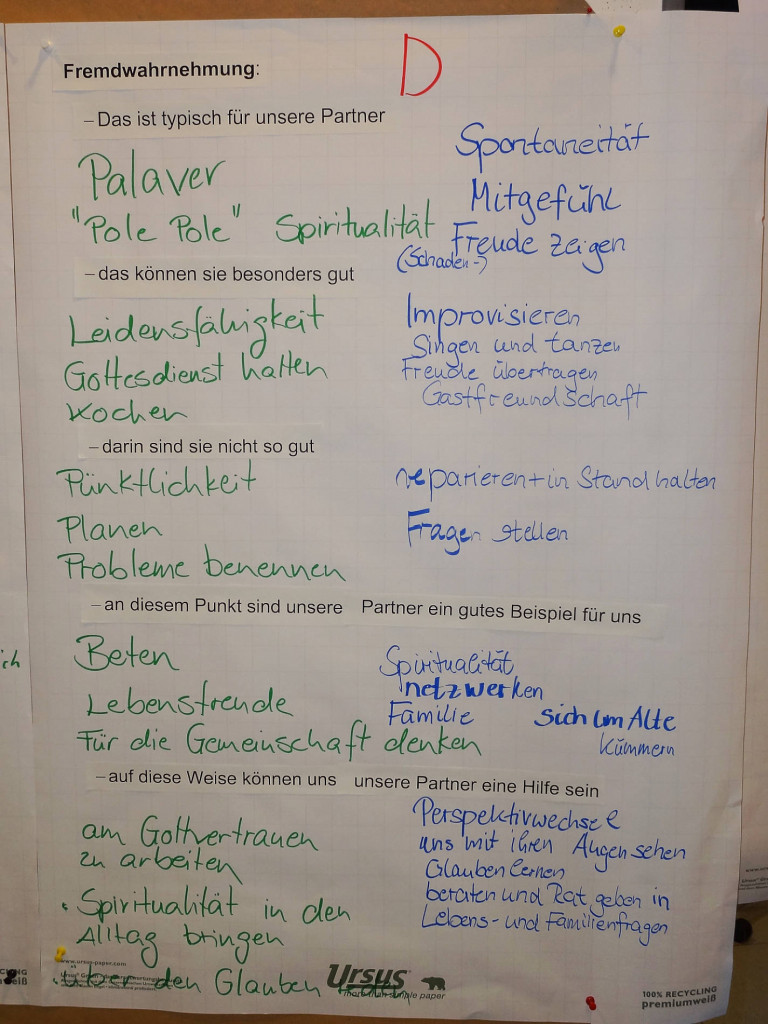 D
Fremdwahrnehmung:
– Das ist typisch für unsere Partner
Palaver
"Pole Pole" Spiritualität
Spontaneität
Mitgefühl
Freude zeigen
(Schaden-)
– das können sie besonders gut
Leidensfähigkeit
Gottesdienst halten
Kochen
Improvisieren
Singen und tanzen
Freude übertragen
Gastfreundschaft
– darin sind sie nicht so gut
Pünktlichkeit
Planen
Probleme benennen
reparieren + in Stand halten
Fragen stellen
– an diesem Punkt sind unsere Partner ein gutes Beispiel für uns
Beten
Lebensfreude
Für die Gemeinschaft denken
Spiritualität
netzwerken
Familie
sich um Alte
kümmern
– auf diese Weise können uns unsere Partner eine Hilfe sein
am Gottvertrauen
zu arbeiten
• Spiritualität in den
Alltag bringen
über den Glauben
Perspektivwechsel
uns mit ihren Augen sehen
Glauben lernen
beraten und Rat geben in
Lebens- und Familienfragen
www.ursus-paper.com
Ursus
more than simple paper
100% RECYCLING
premiumweiß
ich